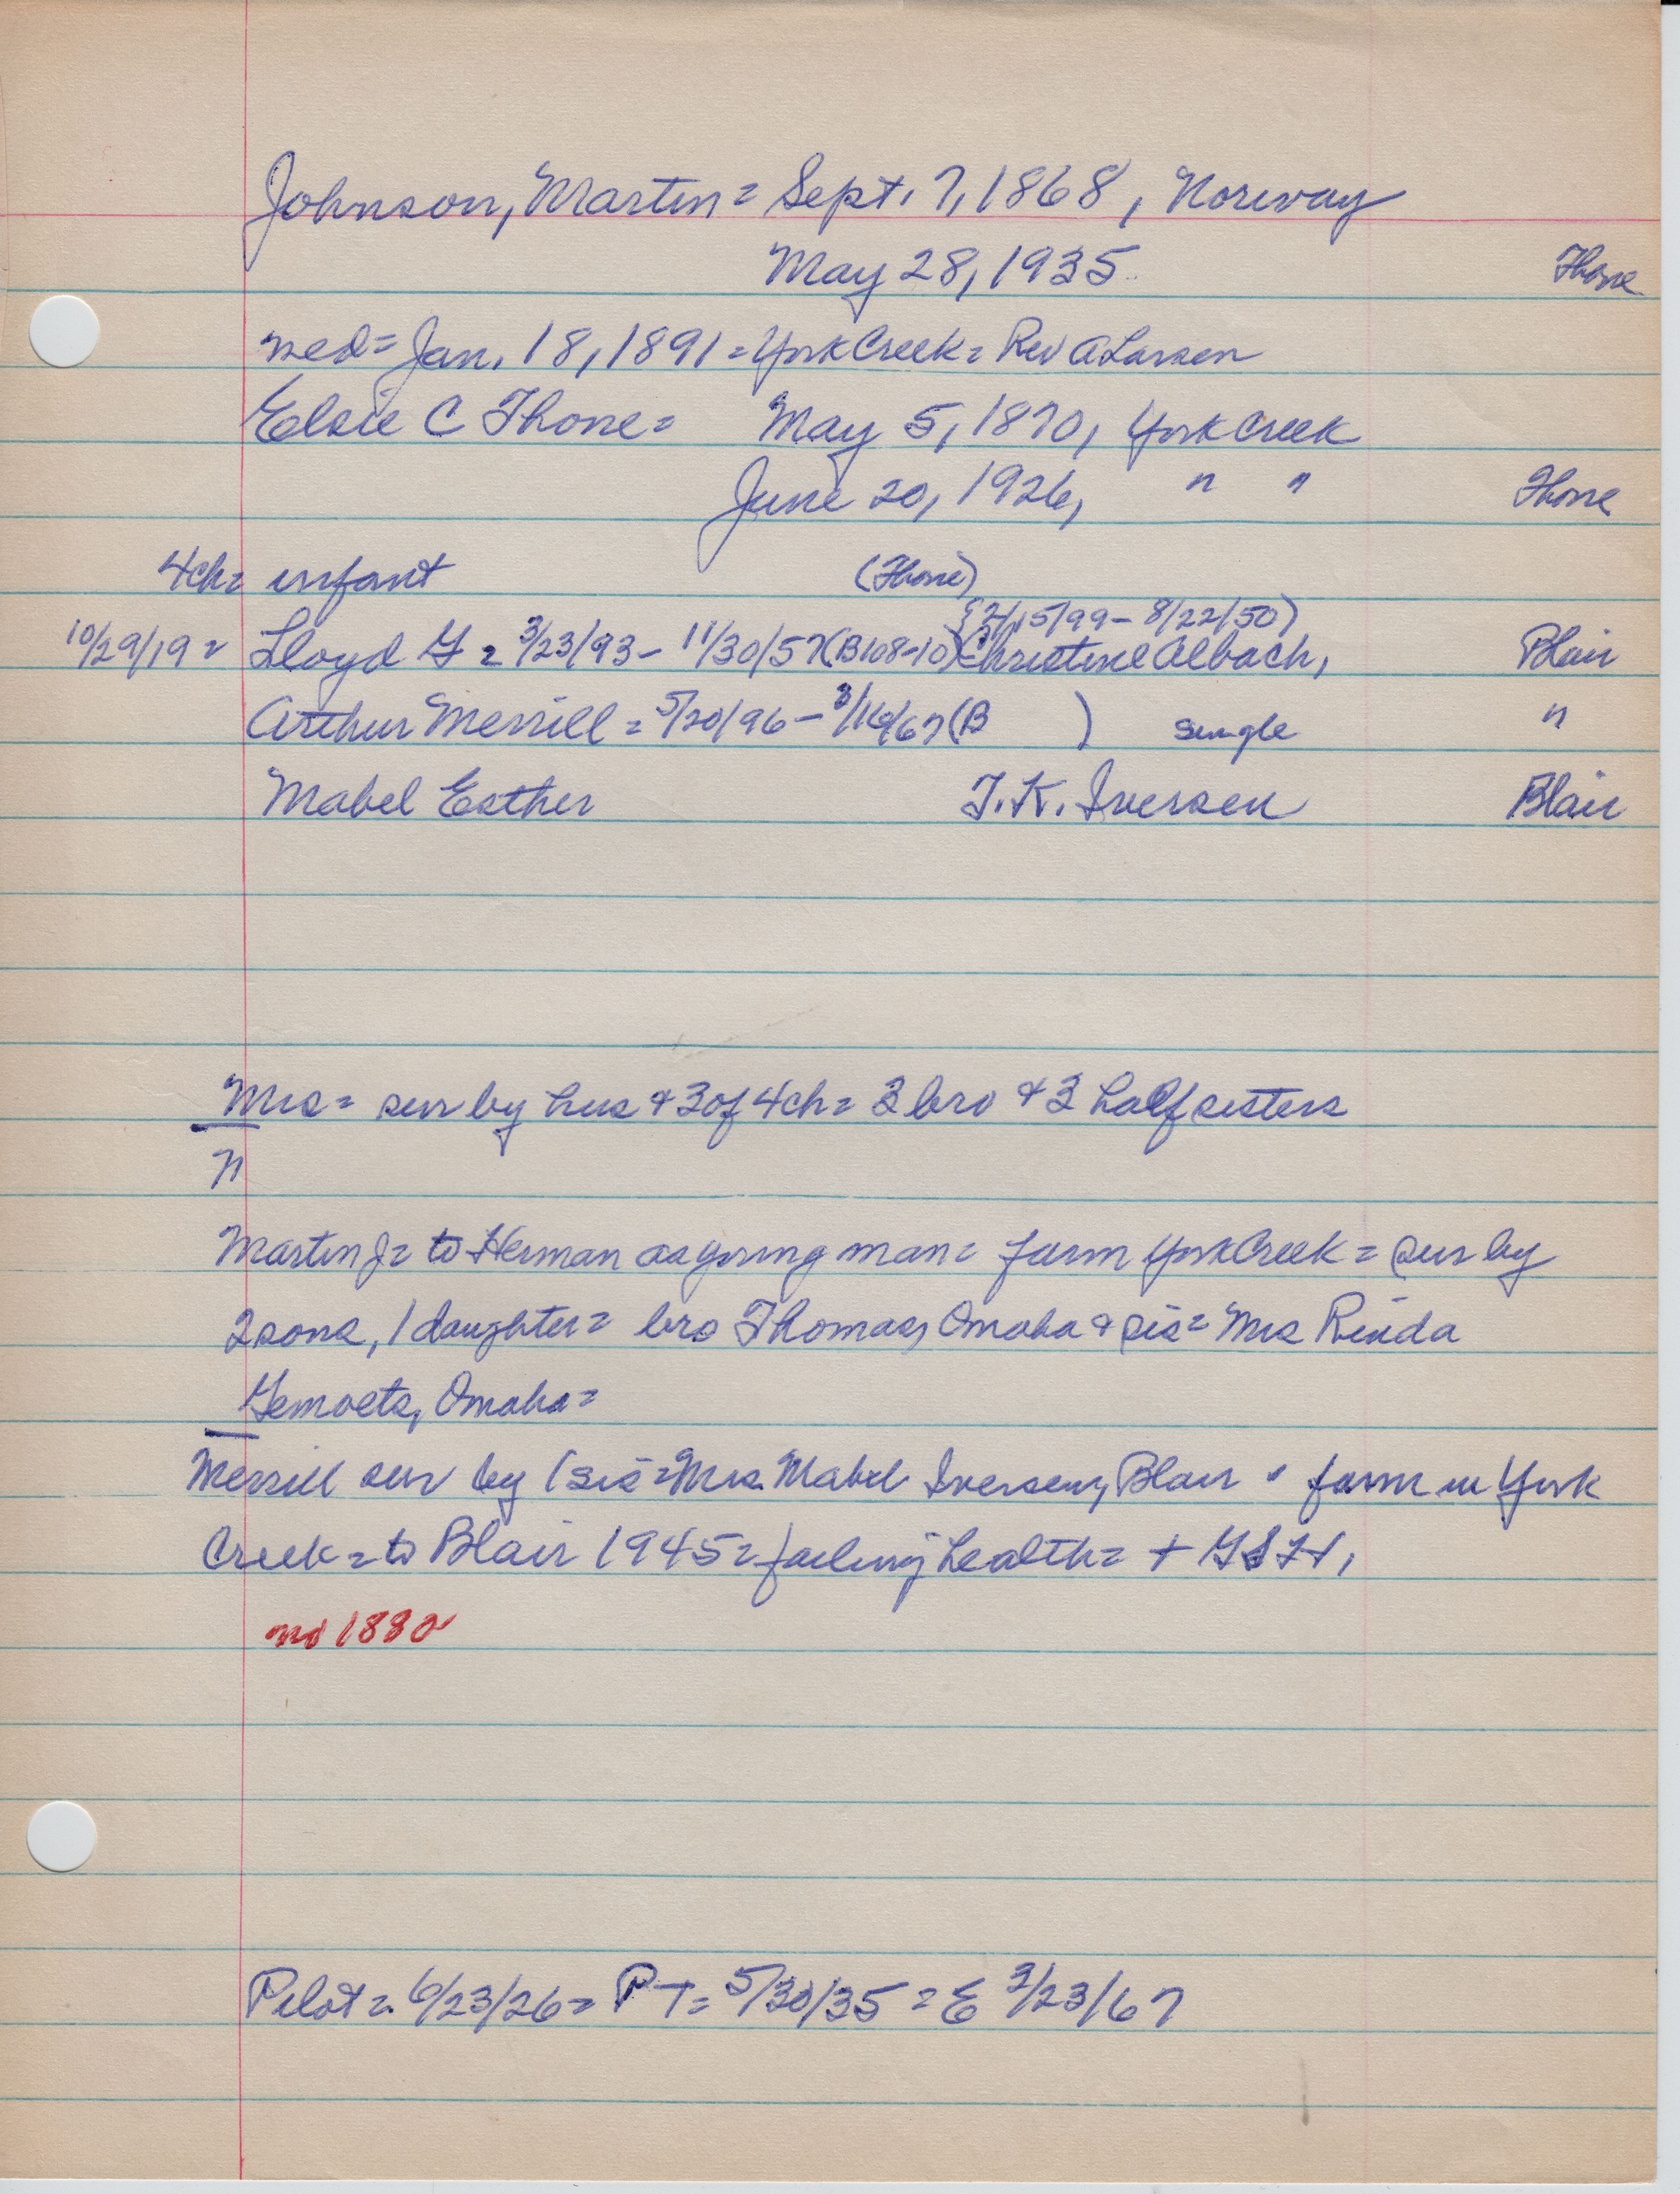 Johnson, Martin = Sept. 7, 1868, Norway
May 28, 1935 Thone
med = Jan. 18, 1891 = York Creek = Rev A Larsen
Elsie C Thone = May 5, 1870, York Creek
June 20, 1926, " " Thone
4ch = infant (Thone)
{2/15/99 - 8/22/50)
10/29/19 = Lloyd G = 3/23/93 - 11/30/57 (B108-10) Christine Albach, Blair
Arthur Merrill = 5/20/96 - 3/16/67 (B ) single "
Mabel Esther T. K. Iversen Blair
Mrs = sur by hus & 3 of 4ch = 3 bro & 3 half sisters
n
Martin J = to Herman as young man = farm York Creek = sur by
2 sons, 1 daughter = bro Thomas, Omaha & sis = Mrs Rinda
Gemoets, Omaha =
Merrill sur by 1 sis = Mrs. Mabel Iversen, Blair = farm in York
Creek = to Blair 1945 = failing health = + GSH,
no 1880
Pilot = 6/23/26 = PT = 5/30/35 = E 3/23/67